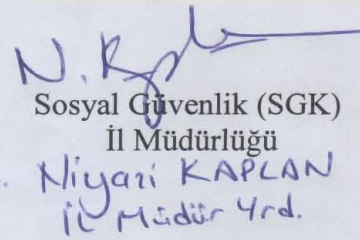 N. Kap
Sosyal Güvenlik (SGK)
İl Müdürlüğü
Niyazi KAPLAN
İL Müdür Yrd.